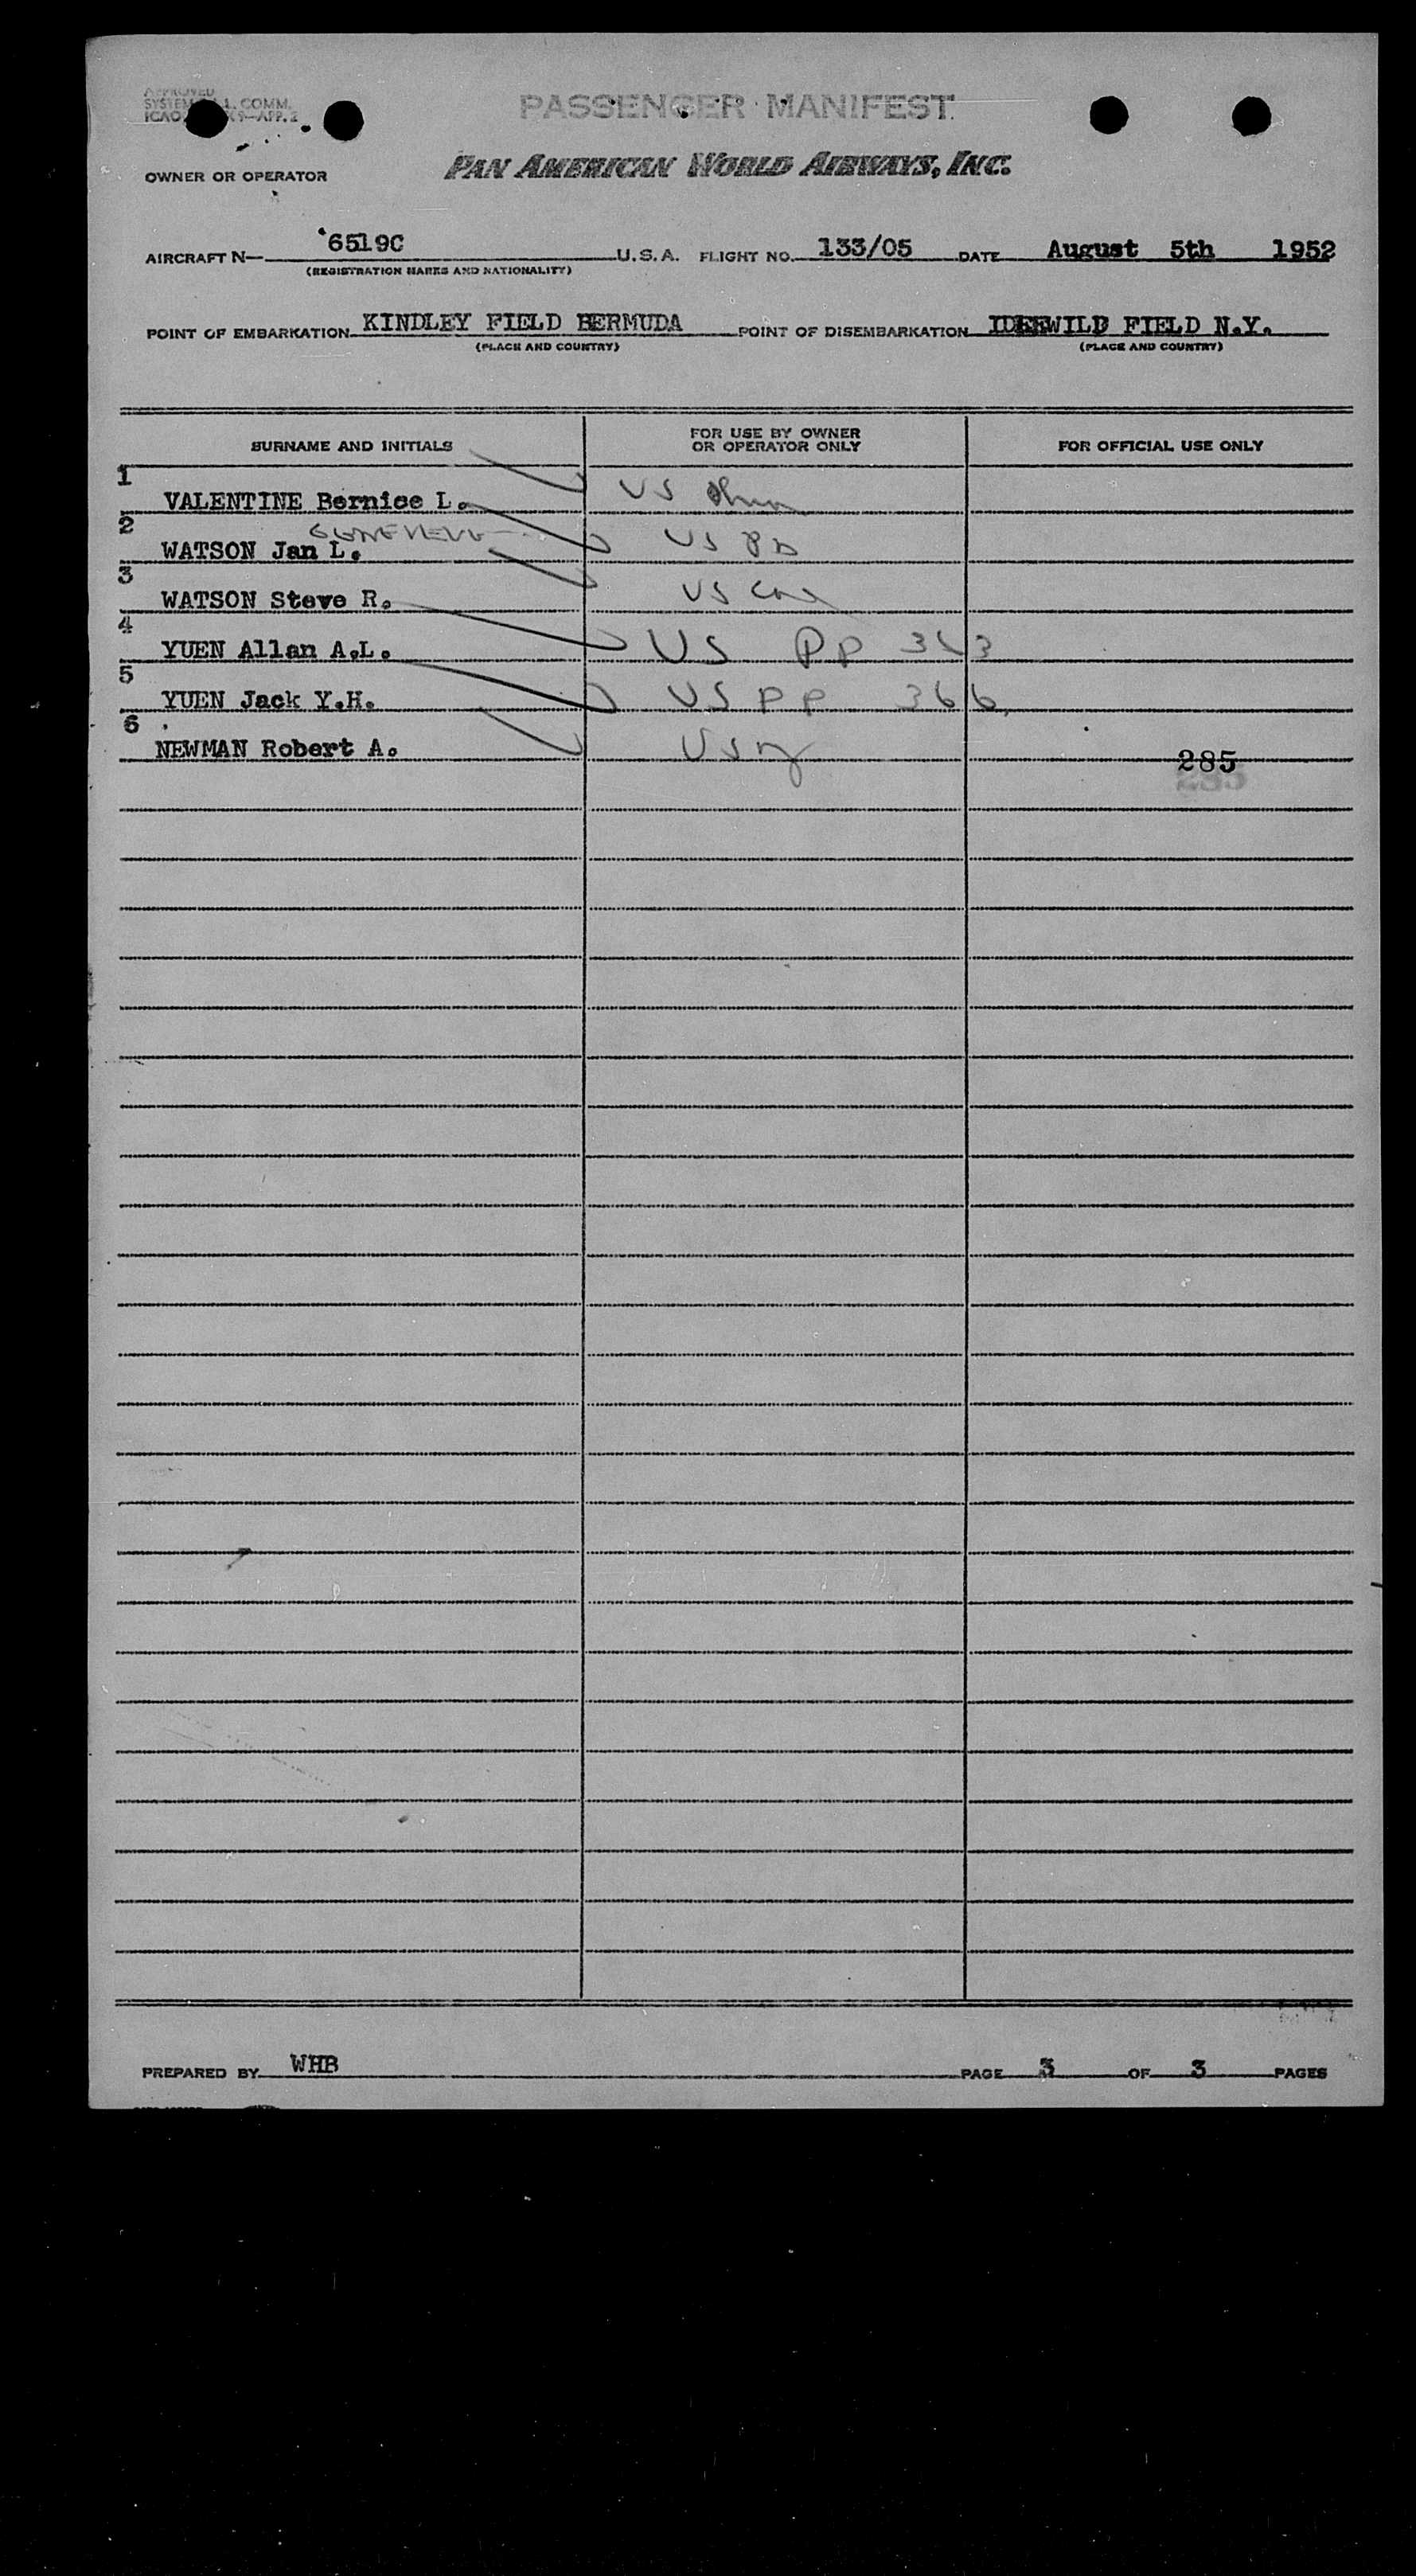 APPROVED
PASSENGER MANIFEST
SYSTEM L. COMM.
ICAO 9—APP. 2
PAN AMERICAN WORLD AIRWAYS, INC.
OWNER OR OPERATOR
AIRCRAFT N— 6519C U.S.A. FLIGHT NO. 133/05 DATE August 5th 1952
(REGISTRATION MARKS AND NATIONALITY)
POINT OF EMBARKATION KINDLEY FIELD BERMUDA POINT OF DISEMBARKATION IDEEWILD FIELD N.Y.
(PLACE AND COUNTRY) (PLACE AND COUNTRY)
SURNAME AND INITIALS FOR USE BY OWNER OR OPERATOR ONLY FOR OFFICIAL USE ONLY
1 VALENTINE Bernice L. US
2 WATSON Jan L. US
3 WATSON Steve R. US
4 YUEN Allan A.L. US PP 363
5 YUEN Jack Y.H. US PP 366
6 NEWMAN Robert A. US
285
PREPARED BY WHB PAGE 3 OF 3 PAGES